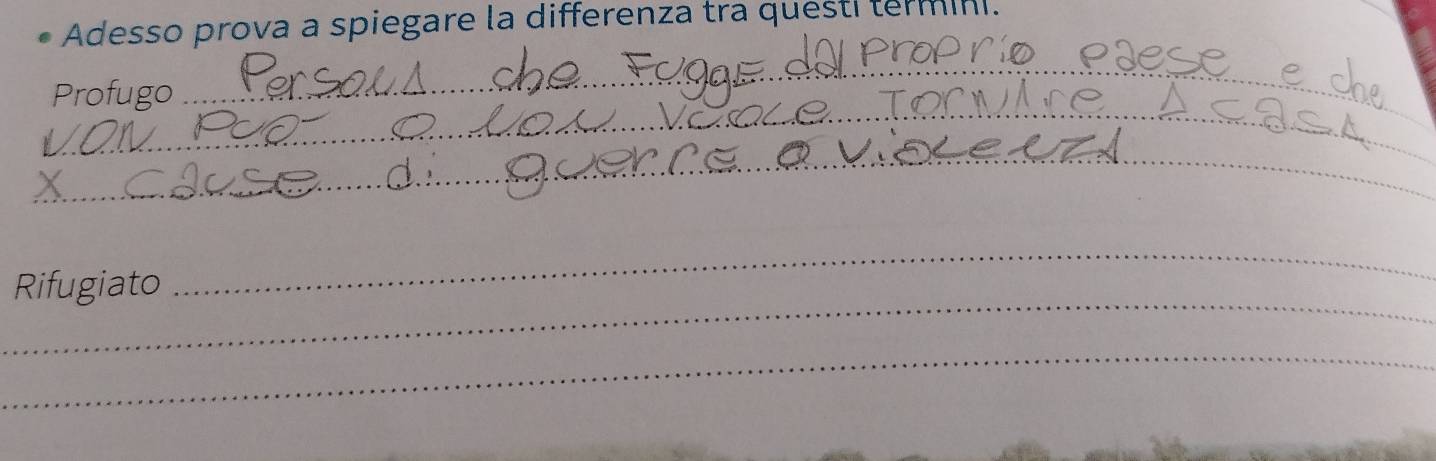 • Adesso prova a spiegare la differenza tra questi termini.
Profugo Persona che Fugge dal proprio paese e che
NON PUO' o non vuole TORNARE A CASA
X cause di guerre o violenza
Rifugiato